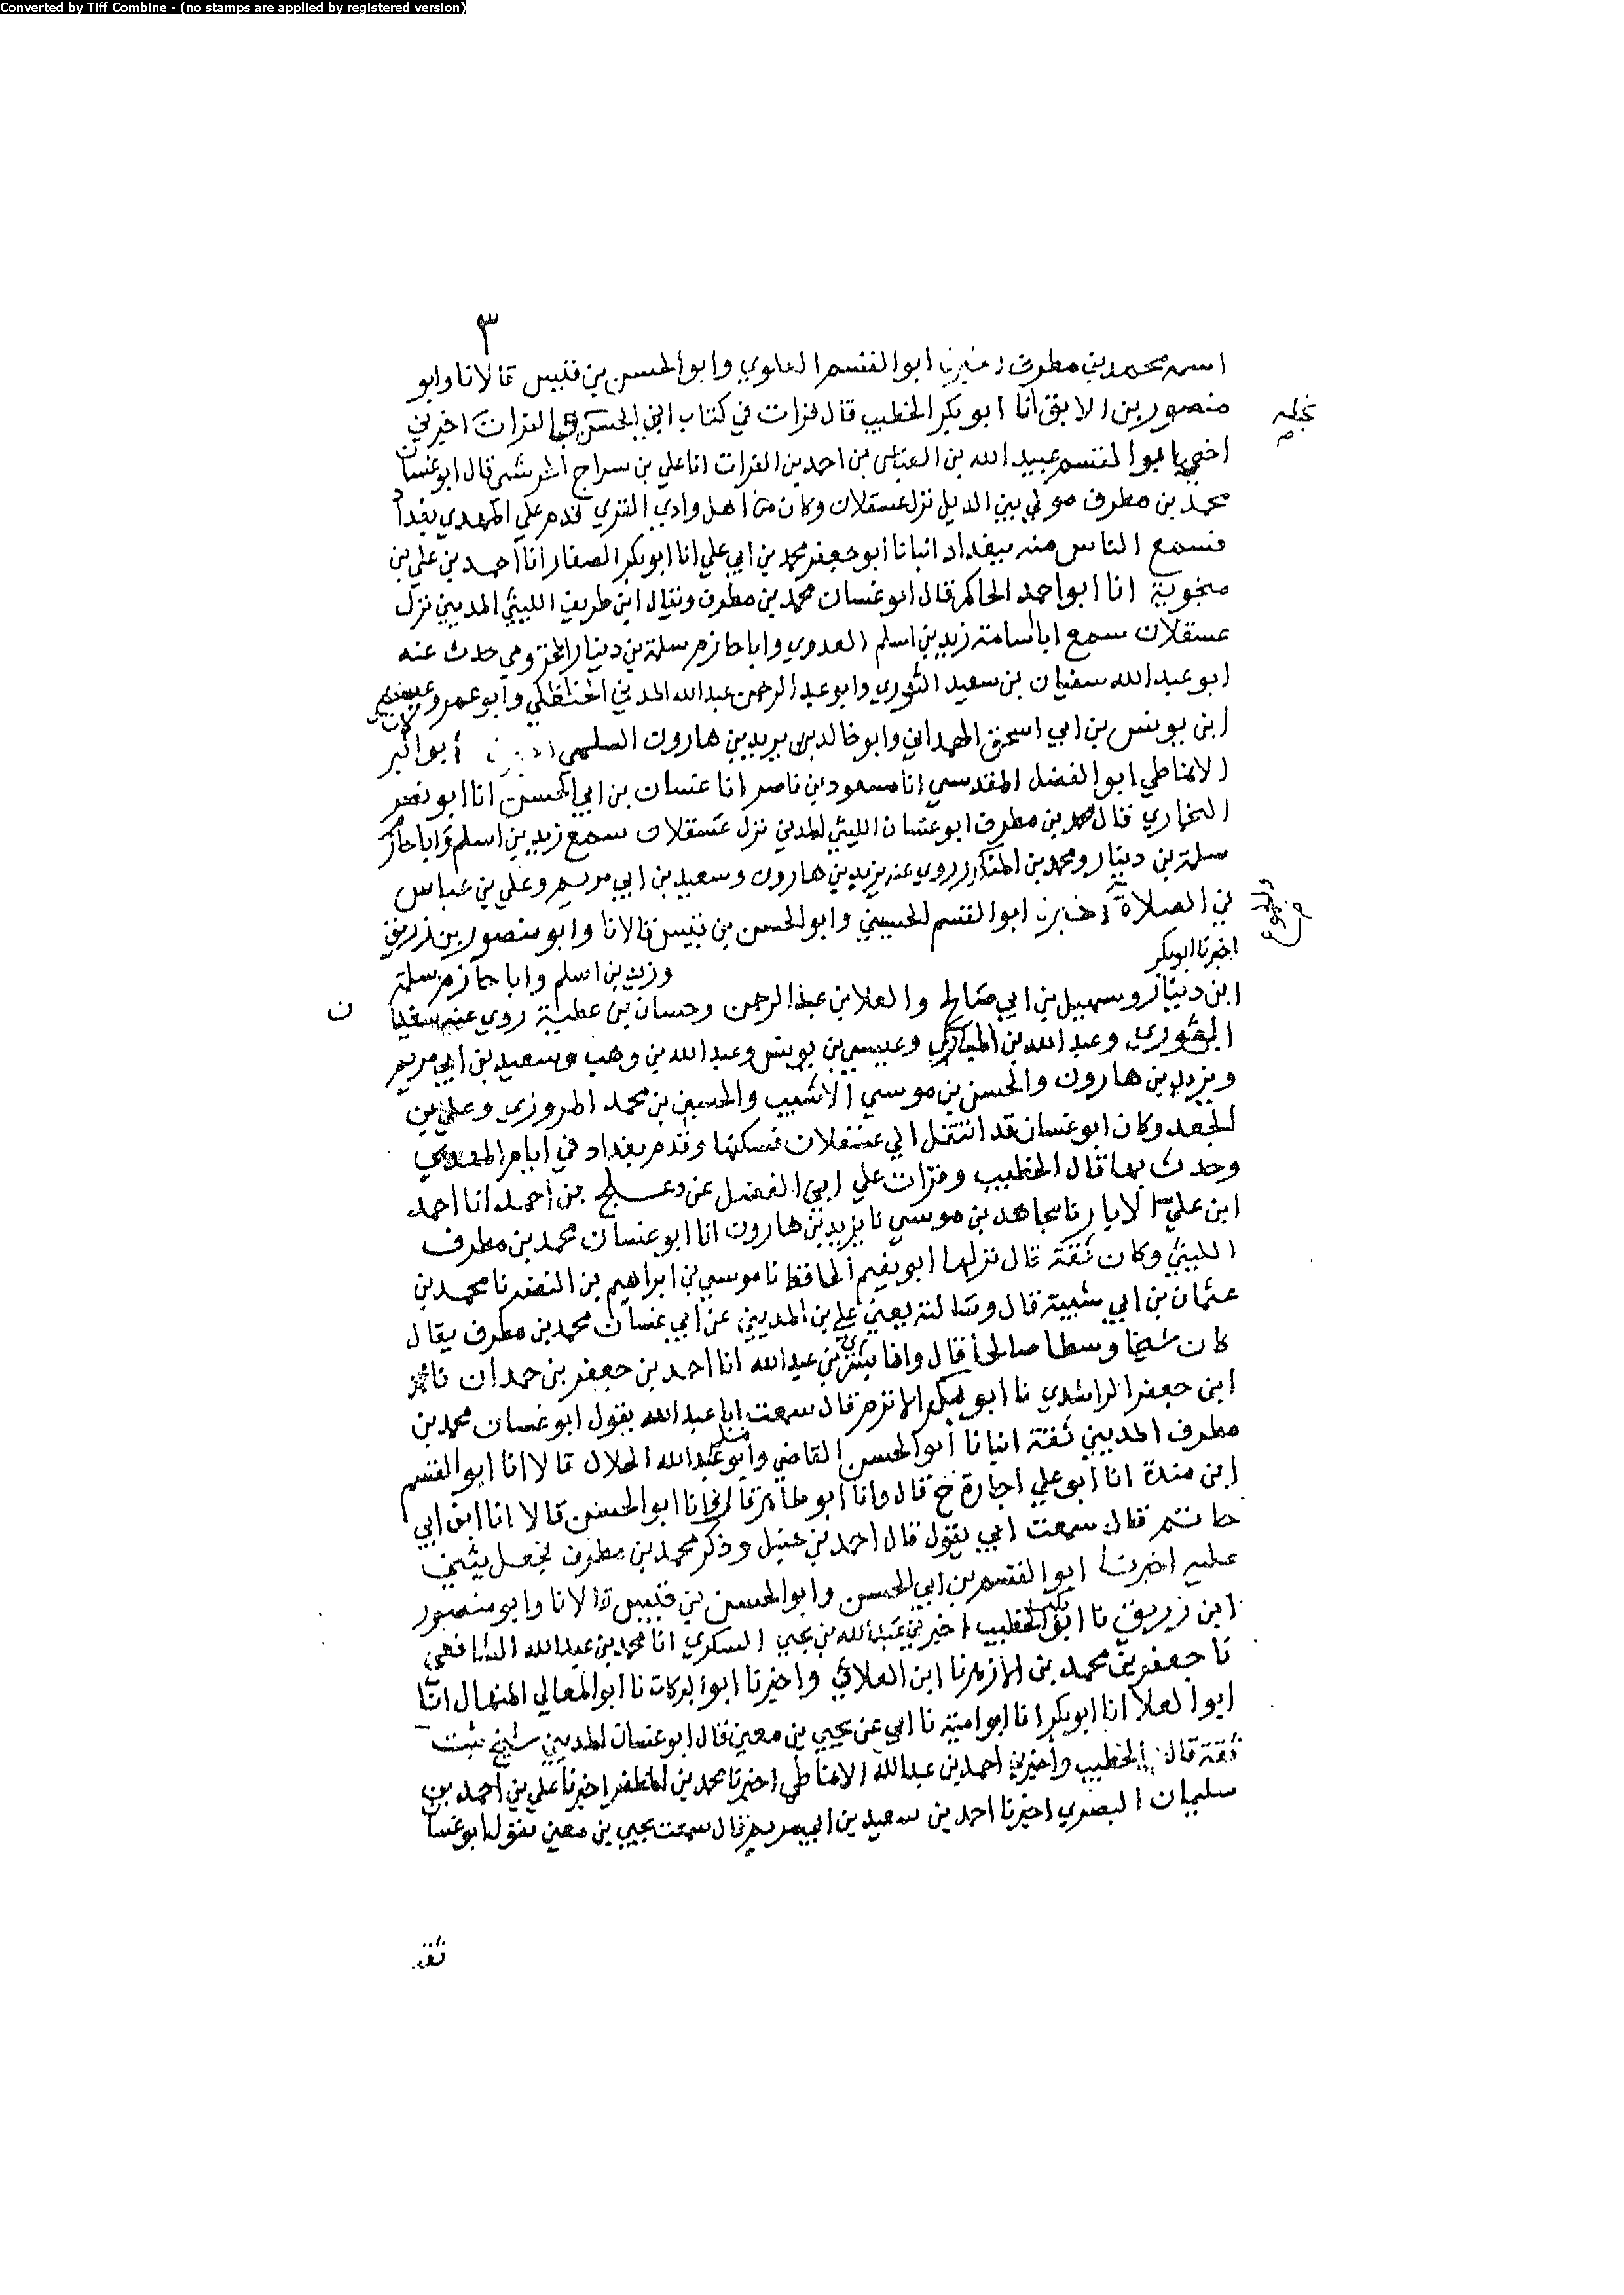 Converted by Tiff Combine - (no stamps are applied by registered version)
٣
اسمه محمد بن مطرف اخبرنا ابوالقسم العلوي وابوالحسن بن قبيس قالا نا وابو
منصور بن انا ابو بكر الخطيب قال قرات في كتاب ابي الحسن بن الفرات اخبرني
بخطه
اخي ابوالقسم عبيد الله بن العباس بن احمد بن الفرات انا علي بن سراج قال ابوغسان
محمد بن مطرف مولي بني الديل نزل عسقلان وكان من اهل وادي القري قدم علي المهدي بغداد
فسمع الناس منه ببغداد انبانا ابو جعفر محمد بن ابي علي انا ابوبكر الصفار انا احمد بن علي بن
منجوية انا ابواحمد الحاكم قال ابوغسان محمد بن مطرف ويقال ابن طريف الليثي المديني نزل
عسقلان سمع ابا اسامة زيد بن اسلم العدوي وابا حازم سلمة بن دينار المخزومي حدث عنه
ابو عبد الله سفيان بن سعيد الثوري وابوعبد الرحمن عبد الله الحنظلي وابو عمرو عيسي
ابن يونس بن ابي اسحق الهمداني وابوخالد يزيد بن هارون السلمي ابو البركات
الانماطي ابو الفضل المقدسي انا مسعود بن ناصر انا بن ابي الحسن انا ابو نصر
البخاري قال محمد بن مطرف ابوغسان الليثي المديني نزل عسقلان سمع زيد بن اسلم وابا حازم
سلمة بن دينار ومحمد بن المنكدر روي عنه يزيد بن هارون وسعيد بن ابي مريم وعلي بن عياش
في الصلاة اخبرنا ابوالقسم الحسيني وابوالحسن بن قبيس قالا نا وابو منصور بن زريق
اخبرنا ابوبكر وزيد بن اسلم وابا حازم سلمة
ابن دينار وسهيل بن ابي صالح والعلا بن عبد الرحمن وحسان بن عطية روي عنه سفيا ن
الثوري وعبد الله بن المبارك وعيسي بن يونس وعبد الله بن وهب وسعيد بن ابي مريم
ويزيد بن هارون والحسن بن موسي الاشيب والحسين بن محمد المروزي وعلي بن
الجعد وكان ابوغسان قد انتقل الي عسقلان فسكنها وقدم بغداد في ايام المهدي
وحدث بها قال الخطيب وقرات علي ابي الفضل عن دعلج بن احمد انا احمد
ابن علي الابار نا مجاهد بن موسي نا يزيد بن هارون انا ابوغسان محمد بن مطرف
الليثي وكان ثقة قال ابو نعيم الحافظ نا موسي بن ابراهيم بن النضر نا محمد بن
عثمان بن ابي شيبة قال وسالته يعني علي بن المديني عن ابي غسان محمد بن مطرف يقال
كان شيخا وسطا صالحا قال وانا بن عبد الله انا احمد بن جعفر بن حمدان نا
ابن جعفر الراشدي نا ابو بكر الاثرم قال سمعت ابا عبد الله يقول ابو غسان محمد بن
مطرف المديني ثقة انبانا ابوالحسن القاضي وابو عبد الله الخلال قالا انا ابو القسم
ابن مندة انا ابو علي اجازة ح قال وانا ابو طاهر قال انا ابوالحسن قالا انا ابن ابي
حاتم قال سمعت ابي يقول قال احمد بن حنبل وذكر محمد بن مطرف فجعل يثني
عليه اخبرنا ابو القسم بن ابي الحسن وابوالحسن بن قبيس قالا نا وابو منصور
ابن زريق نا ابو بكر الخطيب اخبرني عبد الله بن يحيي السكري انا محمد بن عبد الله الشافعي
نا جعفر بن محمد بن الازهر نا ابن الغلابي واخبرنا ابوالبركات نا ابوالمعالي انا
ابو العلا انا ابوبكر انا ابوامية نا ابي عن يحيي بن معين قال ابوغسان المديني شيخ ثبت
ثقة قال الخطيب واخبرني احمد بن عبد الله الانماطي اخبرنا محمد بن المظفر اخبرنا علي بن احمد بن
سليمان البصري اخبرنا احمد بن سعيد بن ابي مريم قال سمعت يحيي بن معين يقول ابوغسان
ثقة